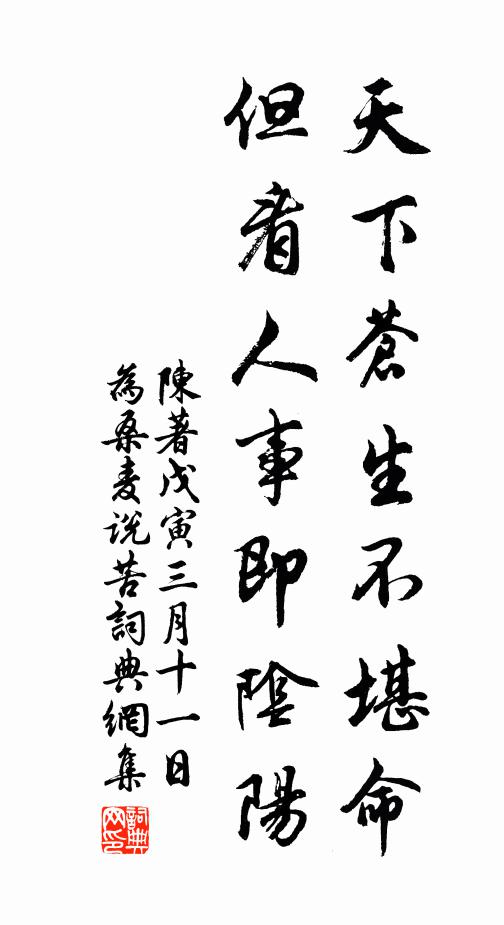 天下蒼生不堪命
但看人事即陰陽
陳著戊寅三月十一日
為桑麦说苦詞典網集
詞典网印